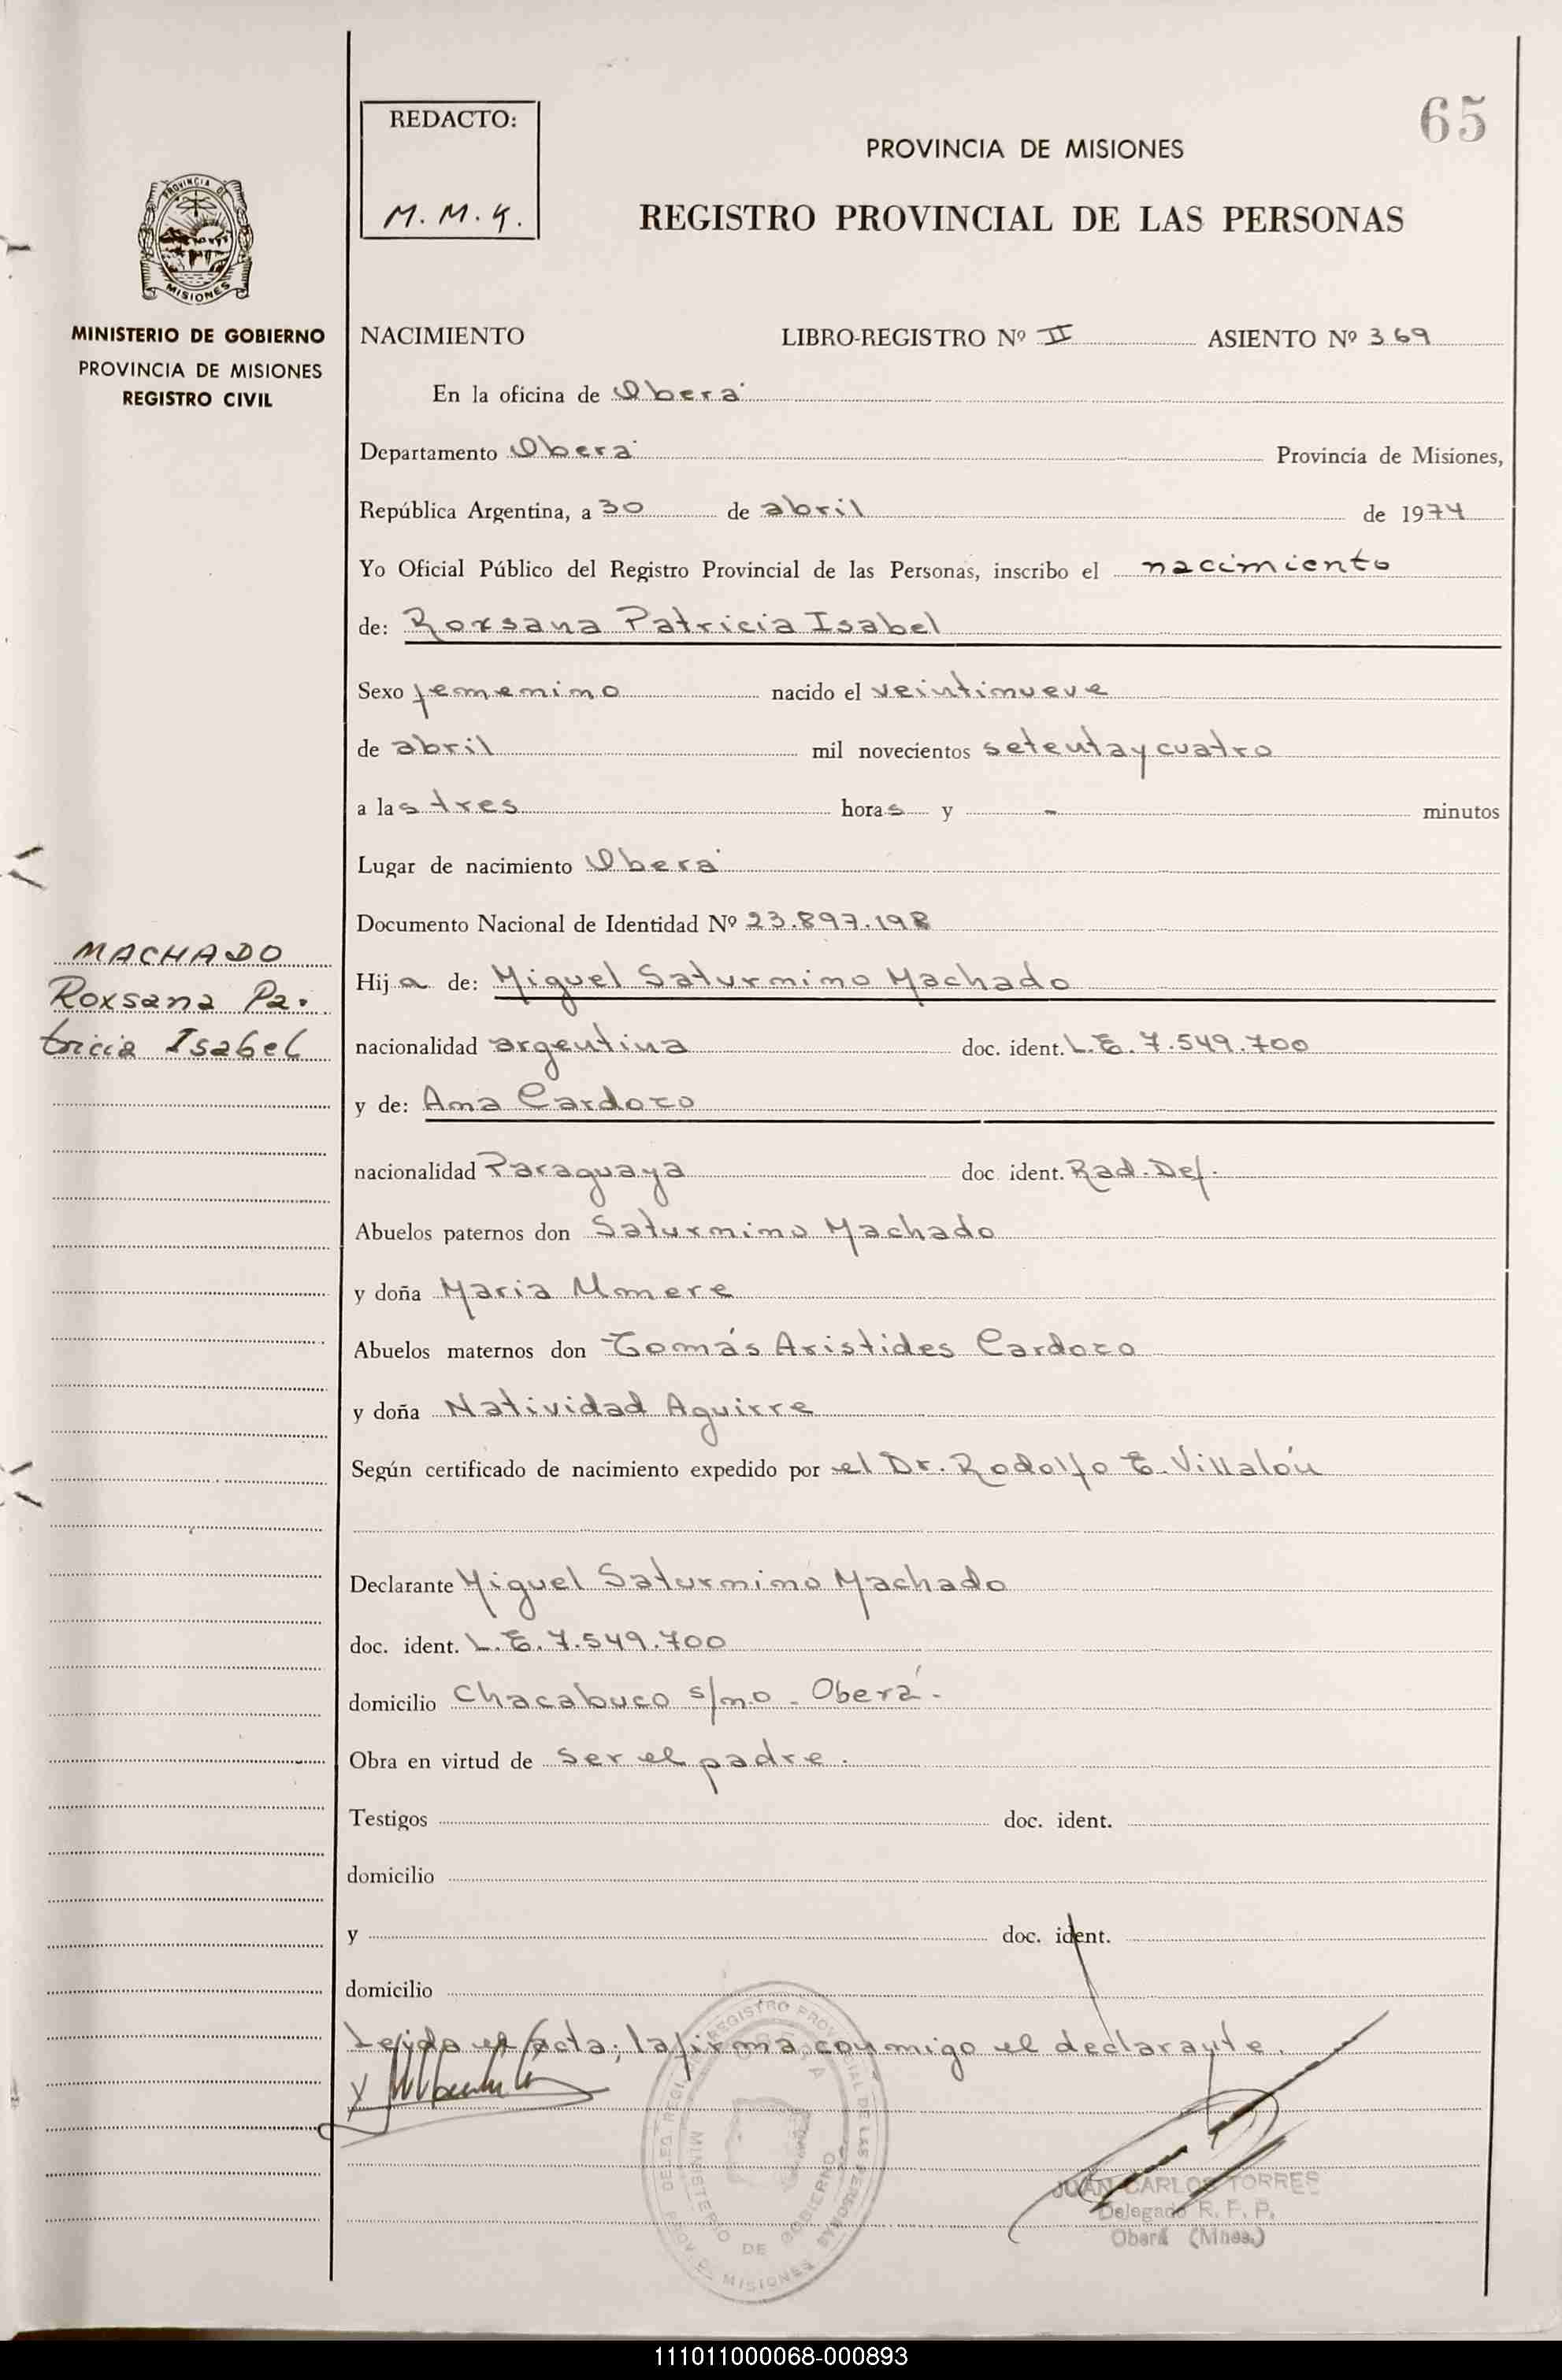 65
REDACTO:
M. M. K.
PROVINCIA DE MISIONES
REGISTRO PROVINCIAL DE LAS PERSONAS
PROVINCIA DE
MISIONES
MINISTERIO DE GOBIERNO
PROVINCIA DE MISIONES
REGISTRO CIVIL
NACIMIENTO LIBRO-REGISTRO Nº II ASIENTO Nº 369
En la oficina de Oberá
Departamento Oberá Provincia de Misiones,
República Argentina, a 30 de abril de 1974
Yo Oficial Público del Registro Provincial de las Personas, inscribo el nacimiento
de: Roxsana Patricia Isabel
Sexo femenino nacido el veintinueve
de abril mil novecientos setenta y cuatro
a las tres horas y - minutos
Lugar de nacimiento Oberá
Documento Nacional de Identidad Nº 23.897.198
MACHADO
Roxsana Pa-
tricia Isabel
Hija de: Miguel Saturnino Machado
nacionalidad argentina doc. ident. L.E. 7.549.700
y de: Ana Cardozo
nacionalidad Paraguaya doc. ident. Rad. Def.
Abuelos paternos don Saturnino Machado
y doña Maria Umere
Abuelos maternos don Tomás Aristides Cardozo
y doña Natividad Aguirre
Según certificado de nacimiento expedido por el Dr. Rodolfo E. Villalón
Declarante Miguel Saturnino Machado
doc. ident. L.E. 7.549.700
domicilio Chacabuco s/no - Oberá.
Obra en virtud de ser el padre.
Testigos doc. ident.
domicilio
y doc. ident.
domicilio
Leída el acta; la firma conmigo el declarante.
MINISTERIO DE GOBIERNO
PROV. D. MISIONES
JUAN CARLOS TORRES
Delegado R. P. P.
Oberá (Mnes.)
111011000068-000893